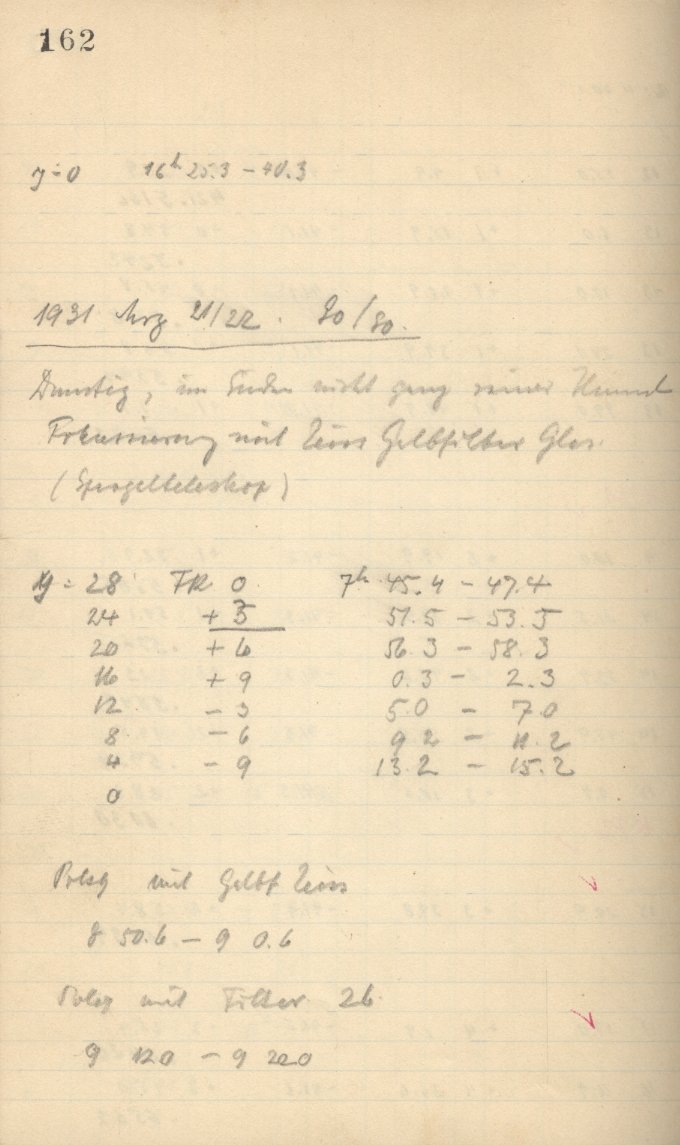 162
y = 0 16h 25.3 – 40.3
1931 Mrz 21/22. 80/80.
Dunstig, im Süden nicht ganz reiner Himmel
Fokussierung mit Zeiss Gelbfilter Glas.
(Spiegelteleskop)
y = 28 FR 0 7h 45.4 – 47.4
24 + 3 51.5 – 53.5
20 + 6 56.3 – 58.3
16 + 9 0.3 – 2.3
12 – 3 5.0 – 7.0
8 – 6 9.2 – 11.2
4 – 9 13.2 – 15.2
0
Polsq mit Gelbf Zeiss
8 50.6 – 9 0.6
Polsq mit Filter 26.
9 12.0 – 9 22.0